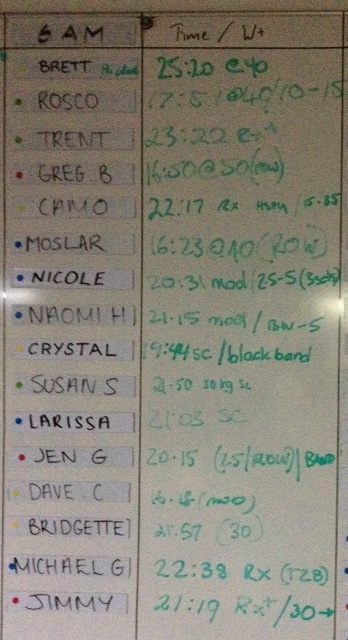 6 AM Time / W+
BRETT 25:20 @ 40
ROSCO @40/10-15
TRENT 23:22 Rx+
GREG. B 16:50 @ 50 (row)
CAMO 22:17 Rx / 15-85
MOSLAR 16:23 @ 40 (ROW)
NICOLE 20:31 mod / 25-5 (3sets)
NAOMI H 21.15 mod / BW-5
CRYSTAL 19:44 SC / black band
SUSAN S 21.50 30kg sc
LARISSA 21:03 SC
JEN G 20.15 (7.5/ROW) BAND
DAVE. C
BRIDGETTE 21.57 (30)
MICHAEL G 22:38 RX (TZB)
JIMMY 21:19 Rx+/30→